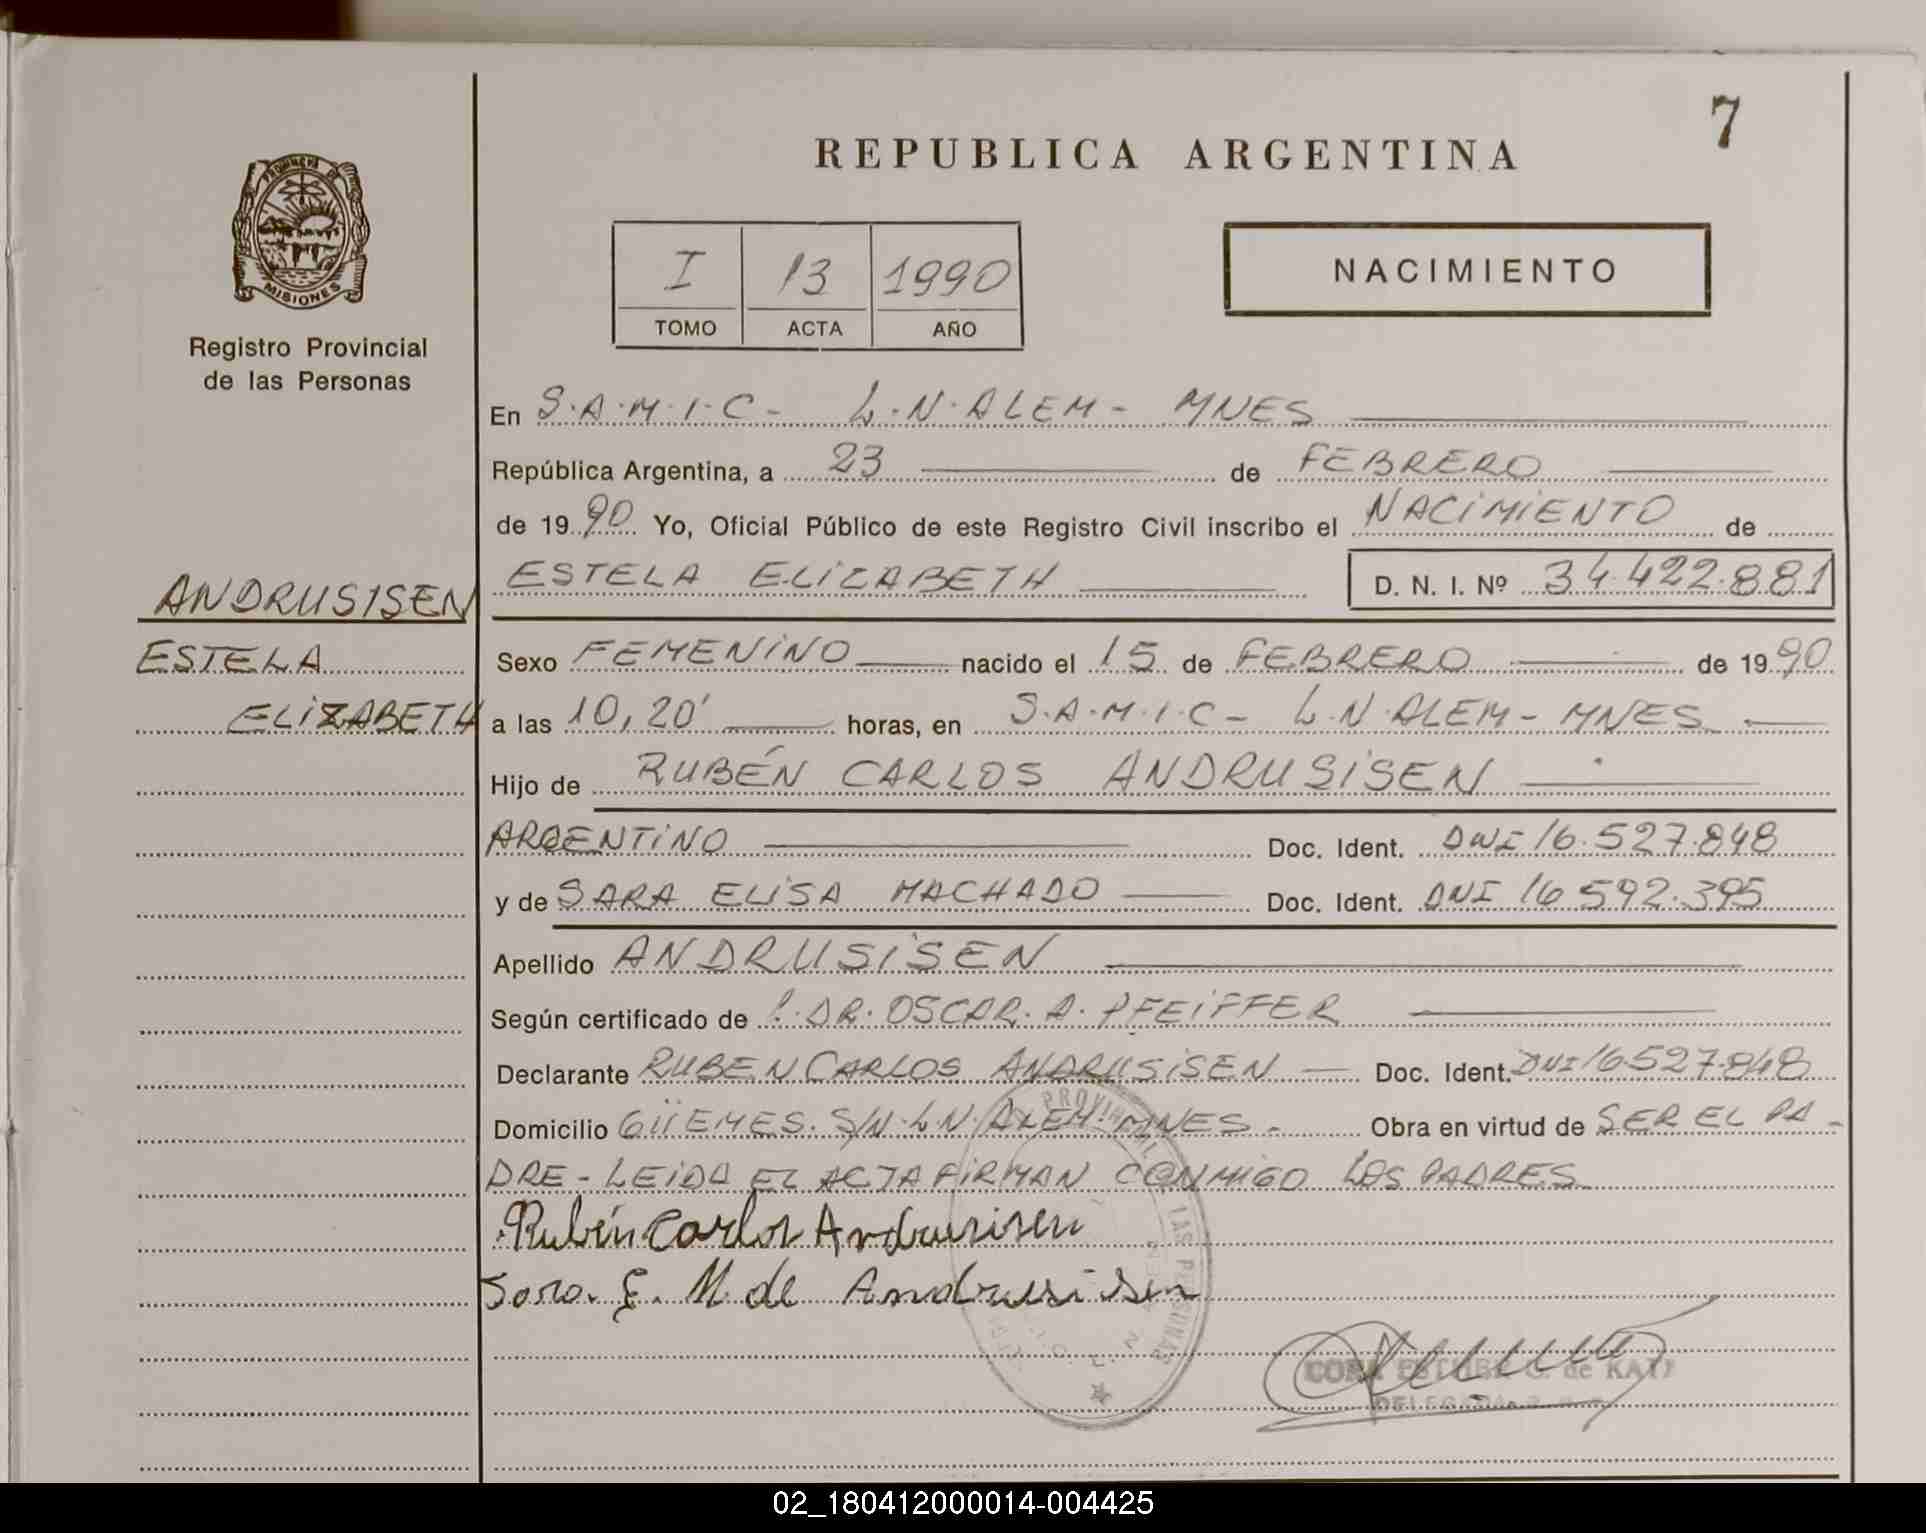 7
REPUBLICA ARGENTINA
PROVINCIA DE
MISIONES
Registro Provincial
de las Personas
I 13 1990
TOMO ACTA AÑO
NACIMIENTO
En S.A.M.I.C- L.N.ALEM- MNES
República Argentina, a 23 de FEBRERO
de 1990 Yo, Oficial Público de este Registro Civil inscribo el NACIMIENTO de
ESTELA ELIZABETH D. N. I. Nº 34.422.881
ANDRUSISEN
ESTELA
ELIZABETH
Sexo FEMENINO nacido el 15 de FEBRERO de 1990
a las 10,20' horas, en S.A.M.I.C- L.N.ALEM- MNES
Hijo de RUBÉN CARLOS ANDRUSISEN
ARGENTINO Doc. Ident. DNI 16.527.848
y de SARA ELISA MACHADO Doc. Ident. DNI 16.592.395
Apellido ANDRUSISEN
Según certificado de DR. OSCAR. A. PFEIFFER
Declarante RUBEN CARLOS ANDRUSISEN Doc. Ident. DNI 16.527.848
Domicilio GÜEMES. S/N-L.N. ALEM-MNES- Obra en virtud de SER EL PA-
DRE- LEIDA EL ACTA FIRMAN CONMIGO LOS PADRES
Rubén Carlos Andrusisen
Sara. E. M. de Andrusisen
LAS PERSONAS
ESTHER G. de
DELEGADA
02_180412000014-004425